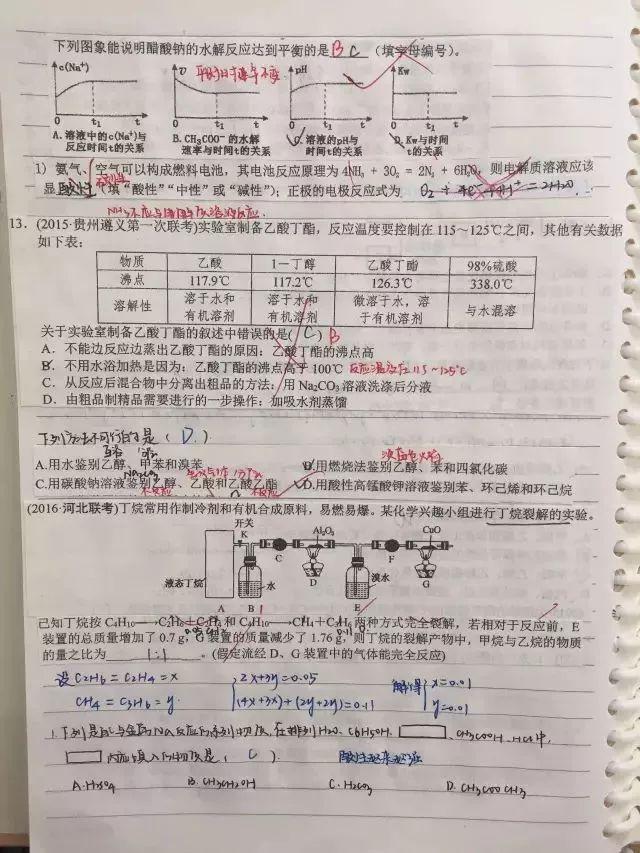 下列图象能说明醋酸钠的水解反应达到平衡的是 B C （填字母编号）。
c(Na⁺) υ 平衡时速率不变 pH Kw
t₁ t t₁ t t₁ t t₁ t
A. 溶液中的c(Na⁺)与反应时间t的关系
B. CH₃COO⁻的水解速率与时间t的关系
C. 溶液的pH与时间t的关系
D. Kw与时间t的关系
1) 氨气、空气可以构成燃料电池，其电池反应原理为 4NH₃ + 3O₂ = 2N₂ + 6H₂O。则电解质溶液应该
显 酸性 （填“酸性”“中性”或“碱性”）；正极的电极反应式为 O₂ + 4e⁻ + 4H⁺ = 2H₂O .
13. (2015·贵州遵义第一次联考)实验室制备乙酸丁酯，反应温度要控制在115～125℃之间，其他有关数据
如下表：
物质 乙酸 1－丁醇 乙酸丁酯 98%硫酸
沸点 117.9℃ 117.2℃ 126.3℃ 338.0℃
溶解性 溶于水和有机溶剂 溶于水和有机溶剂 微溶于水，溶于有机溶剂 与水混溶
关于实验室制备乙酸丁酯的叙述中错误的是( C ) B
A. 不能边反应边蒸出乙酸丁酯的原因：乙酸丁酯的沸点高
B. 不用水浴加热是因为：乙酸丁酯的沸点高于100℃ 反应温度在115～125℃
C. 从反应后混合物中分离出粗品的方法：用Na₂CO₃溶液洗涤后分液
D. 由粗品制精品需要进行的一步操作：加吸水剂蒸馏
下列方法不可行的是 ( D. )
A.用水鉴别乙醇、甲苯和溴苯
B.用燃烧法鉴别乙醇、苯和四氯化碳
Na₂CO₃
C.用碳酸钠溶液鉴别乙醇、乙酸和乙酸乙酯
D.用酸性高锰酸钾溶液鉴别苯、环己烯和环己烷
(2016·河北联考)丁烷常用作制冷剂和有机合成原料，易燃易爆。某化学兴趣小组进行丁烷裂解的实验。
开关 K Al₂O₃ CuO
C D F G
液态丁烷 水 溴水
A B E
已知丁烷按 C₄H₁₀⟶C₂H₆＋C₂H₄和 C₄H₁₀⟶CH₄＋C₃H₆两种方式完全裂解，若相对于反应前，E
装置的总质量增加了 0.7 g，G 装置的质量减少了 1.76 g，则丁烷的裂解产物中，甲烷与乙烷的物质
的量之比为 1:1 。(假定流经 D、G 装置中的气体能完全反应)
设 C₂H₆ = C₂H₄ = x
2x+3y=0.05
解得 x=0.01
CH₄ = C₃H₆ = y.
(4x+3x)+(2y+2y)=0.11
y=0.01
1.下列是能与金属Na反应的系列物质，在排列H₂O、C₆H₅OH、□、CH₃COOH、HCl中,
□内应填入的物质是 ( C ). 酸性越来越强
A. H₂SO₄ B. CH₃CH₂OH C. H₂CO₃ D. CH₃COOCH₃